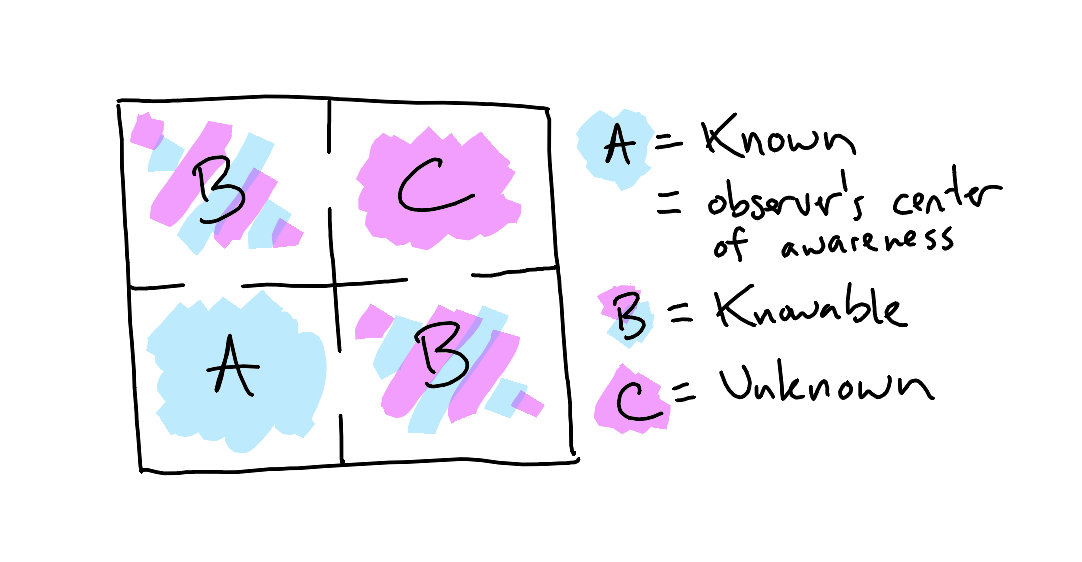 B
C
A
B
A = Known
= observer's center
of awareness
B = Knowable
C = Unknown